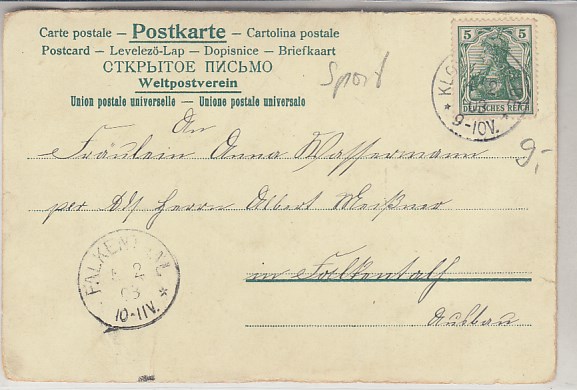 Carte postale – Postkarte – Cartolina postale
Postcard – Levelező-Lap – Dopisnice – Briefkaart
ОТКРЫТОЕ ПИСЬМО
Weltpostverein
Union postale universelle – Unione postale universale
Sport
5 5
DEUTSCHES REICH
9-10V.
9,-
An
Fräulein Anna Wassermann
per Adr Herrn Albert Meißner
in Falkenthal
Ausbau
FALKENTHAL
2
03
10-11V.